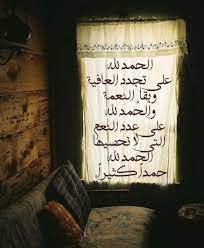 الحمد لله
على تجدد العافية
وبقاء النعمة
والحمد لله
على عدد النعم
التي لا نحصيها
الحمد لله
حمدا كثيرا